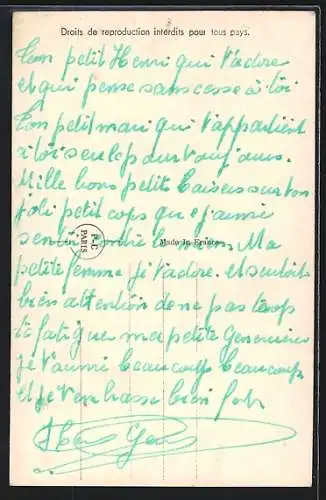 Droits de reproduction interdits pour tous pays.
Ton petit Henri qui t'adore
et qui pense sans cesse à toi
Ton petit mari qui t'appartient
à toi seul pour toujours.
Mille bons petits baisers sur ton
joli petit corps que j'aime
sentir contre le mien. Ma
P-C PARIS
Made in France
petite femme je t'adore. et surtout
bien attention de ne pas trop
te fatiguer ma petite Genevieve
Je t'aime beaucoup beaucoup
et je t'embrasse bien fort